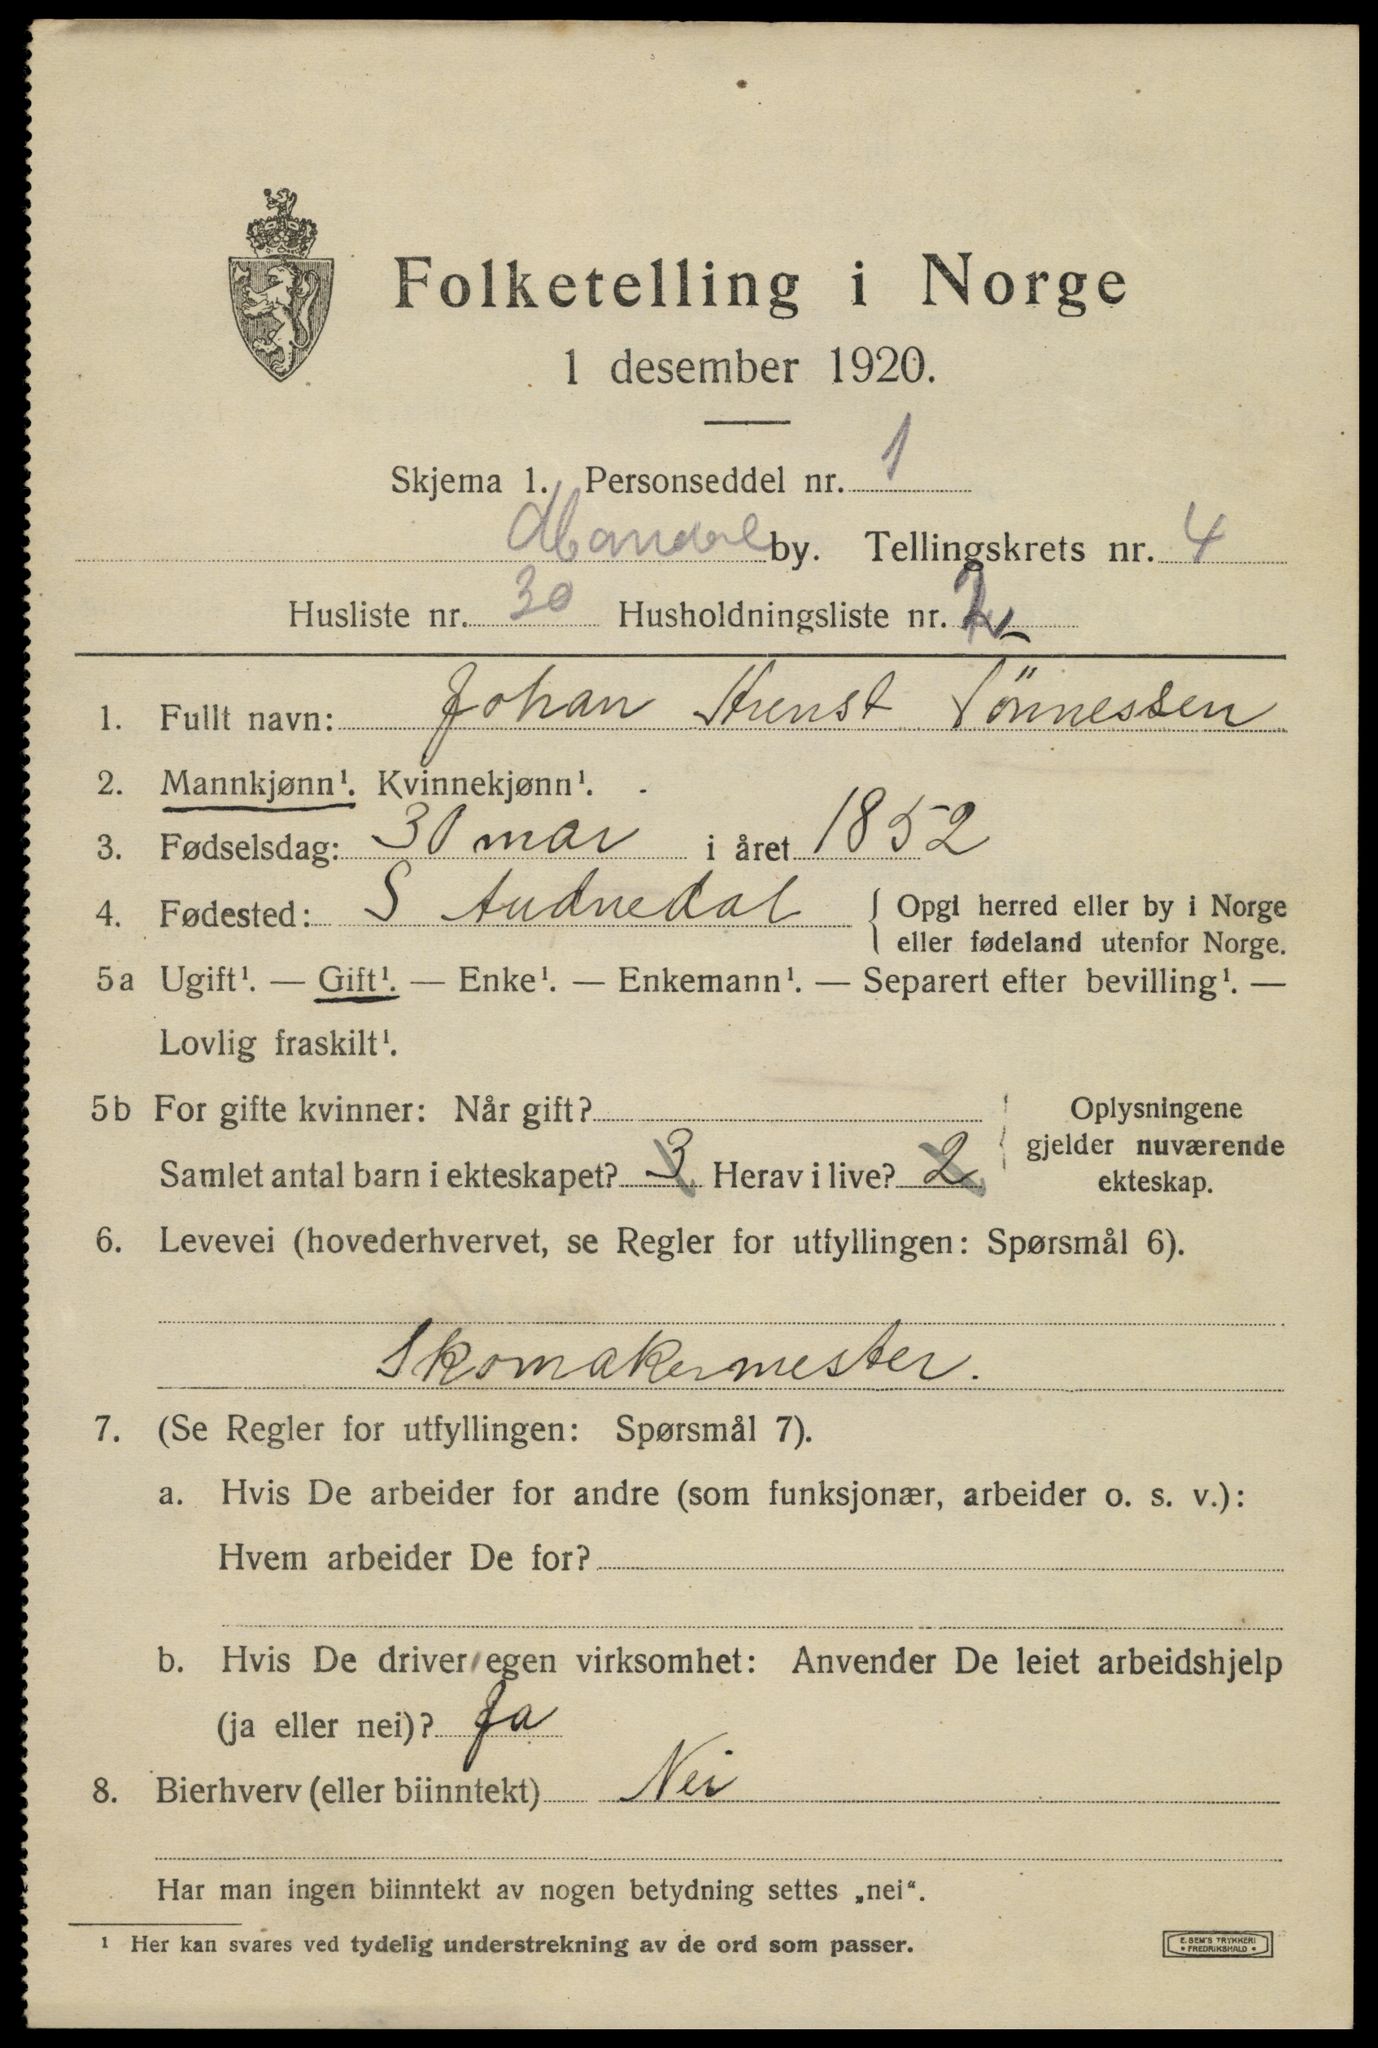 Folketelling i Norge
1 desember 1920.
Skjema 1. Personseddel nr. 1
Mandal by. Tellingskrets nr. 4
Husliste nr. 30 Husholdningsliste nr. 2
1. Fullt navn: Johan Tønnessen
2. Mannkjønn¹. Kvinnekjønn¹.
3. Fødselsdag: 30 mar i året 1852
4. Fødested: S Audnedal { Opgi herred eller by i Norge
eller fødeland utenfor Norge.
5a Ugift¹. — Gift¹. — Enke¹. — Enkemann¹. — Separert efter bevilling¹. —
Lovlig fraskilt¹.
5b For gifte kvinner: Når gift? Oplysningene
gjelder nuværende
Samlet antal barn i ekteskapet? 3 Herav i live? 2 ekteskap.
6. Levevei (hovederhvervet, se Regler for utfyllingen: Spørsmål 6).
Skomakermester.
7. (Se Regler for utfyllingen: Spørsmål 7).
a. Hvis De arbeider for andre (som funksjonær, arbeider o. s. v.):
Hvem arbeider De for?
b. Hvis De driver egen virksomhet: Anvender De leiet arbeidshjelp
(ja eller nei)? Ja
8. Bierhverv (eller biinntekt) Nei
Har man ingen biinntekt av nogen betydning settes „nei“.
¹ Her kan svares ved tydelig understrekning av de ord som passer.
E. SEM'S TRYKKERI
• FREDRIKSHALD •